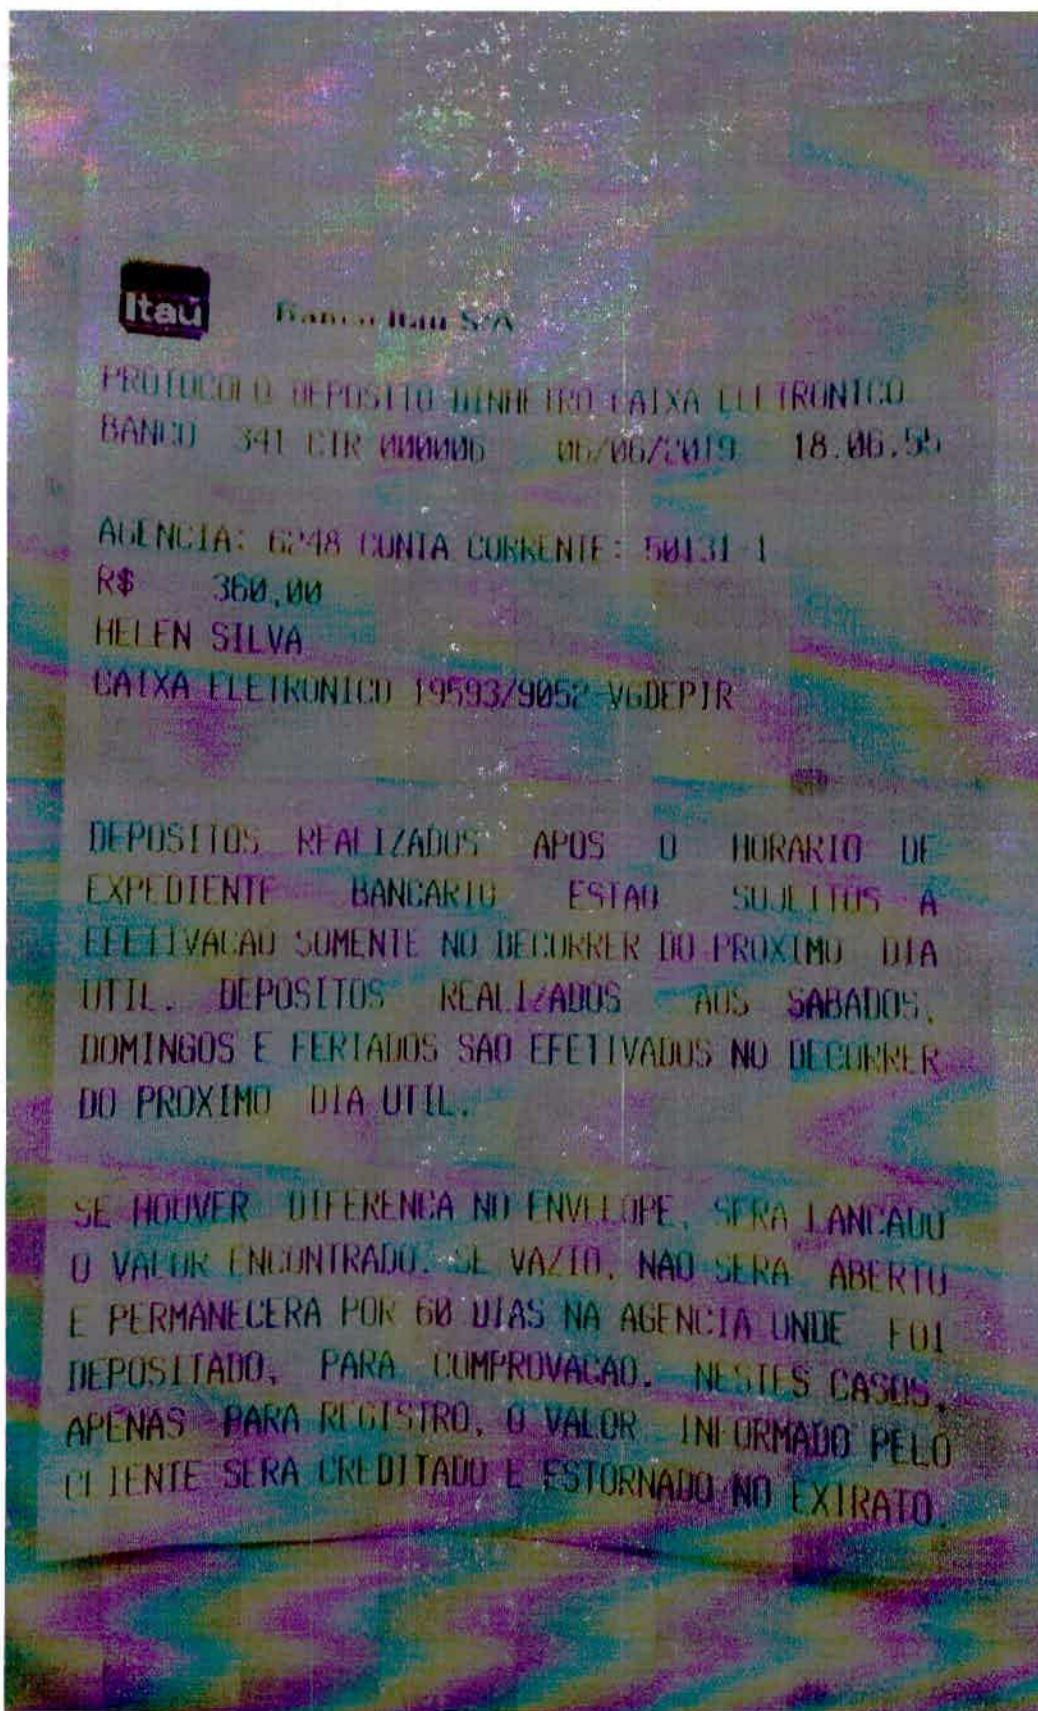 Itaú
Banco Itaú S/A
PROTOCOLO DEPOSITO DINHEIRO CAIXA ELETRONICO
BANCO 341 CTR 000006 06/06/2019 18.06.55
AGENCIA: 6248 CONTA CORRENTE: 50131-1
R$ 360,00
HELEN SILVA
CAIXA ELETRONICO 19593/9052 VGDEPIR
DEPOSITOS REALIZADOS APOS O HORARIO DE
EXPEDIENTE BANCARIO ESTAO SUJEITOS A
EFETIVACAO SOMENTE NO DECORRER DO PROXIMO DIA
UTIL. DEPOSITOS REALIZADOS AOS SABADOS,
DOMINGOS E FERIADOS SAO EFETIVADOS NO DECORRER
DO PROXIMO DIA UTIL.
SE HOUVER DIFERENCA NO ENVELOPE, SERA LANCADO
O VALOR ENCONTRADO. SE VAZIO, NAO SERA ABERTO
E PERMANECERA POR 60 DIAS NA AGENCIA ONDE FOI
DEPOSITADO, PARA COMPROVACAO. NESTES CASOS,
APENAS PARA REGISTRO, O VALOR INFORMADO PELO
CLIENTE SERA CREDITADO E ESTORNADO NO EXTRATO.